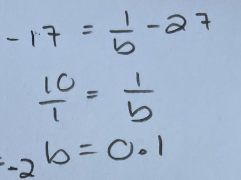 -17 = 1/b - 27
10/1 = 1/b
b = 0.1
=-2